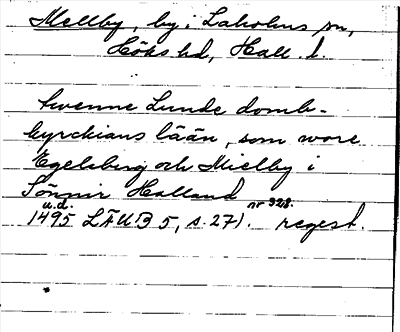 Mellby, by i Laholms sn,
Höks hd, Hall. l.
twenne Lunde domb-
kyrckians lään, som wore
Egelsberg och Mielby i
Sönnir Halland
u.d. nr 328.
1495 LÄUB 5, s. 271. regest.